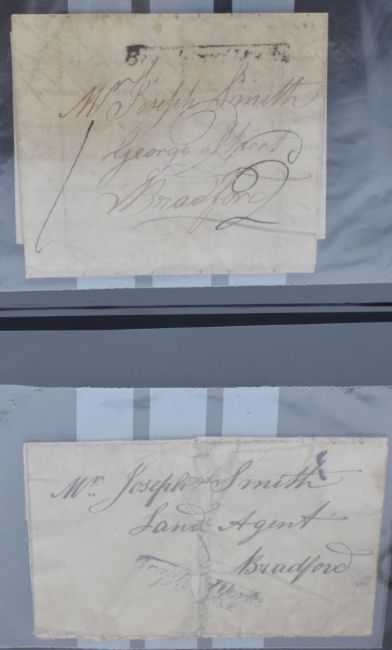 Mr Joseph Smith
George Street
Bradford
1
Mr. Joseph Smith
Land Agent
Bradford